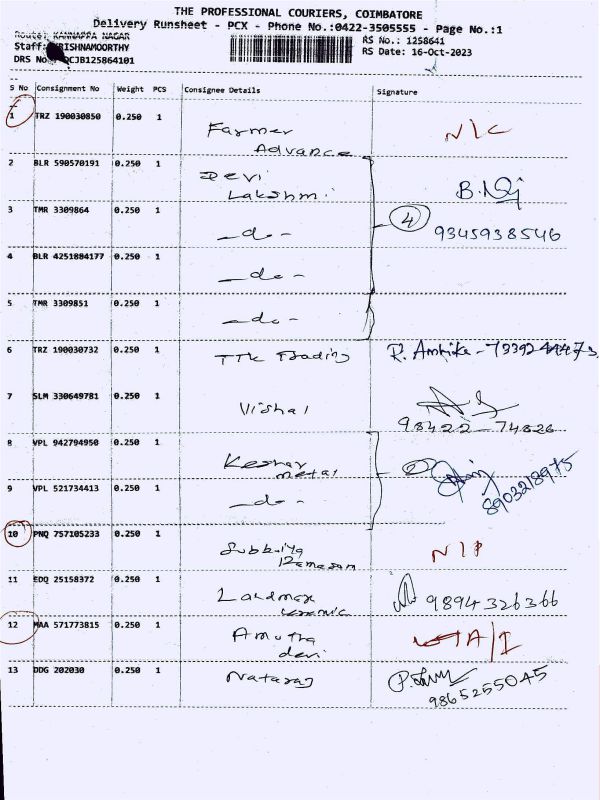 THE PROFESSIONAL COURIERS, COIMBATORE
Delivery Runsheet - PCX - Phone No.:0422-3505555 - Page No.:1
Route: KANNAPPA NAGAR
RS No.: 1258641
Staff: KRISHNAMOORTHY
RS Date: 16-Oct-2023
DRS No. DCJB125864101
S No Consignment No Weight PCS Consignee Details Signature
1 TRZ 190030850 0.250 1 Farmer Advance N/C
2 BLR 590570191 0.250 1 Devi Lakshmi
3 TMR 3309864 0.250 1 —do- 4 9345938546
4 BLR 4251884177 0.250 1 —do-
5 TMR 3309851 0.250 1 —do-
6 TRZ 190030732 0.250 1 TTK Trading R. Ambika -
7 SLM 330649781 0.250 1 Vishal
98422-74826
8 VPL 942794950 0.250 1 Keshav metal 2
8903218975
9 VPL 521734413 0.250 1 —do-
10 PNQ 757105233 0.250 1 Subbaiya N/P
11 EDQ 25158372 0.250 1 Landmax ceramic 9894326366
12 MAA 571773815 0.250 1 Amutha devi A/I
13 DDG 202030 0.250 1 Nataraj
9865255045